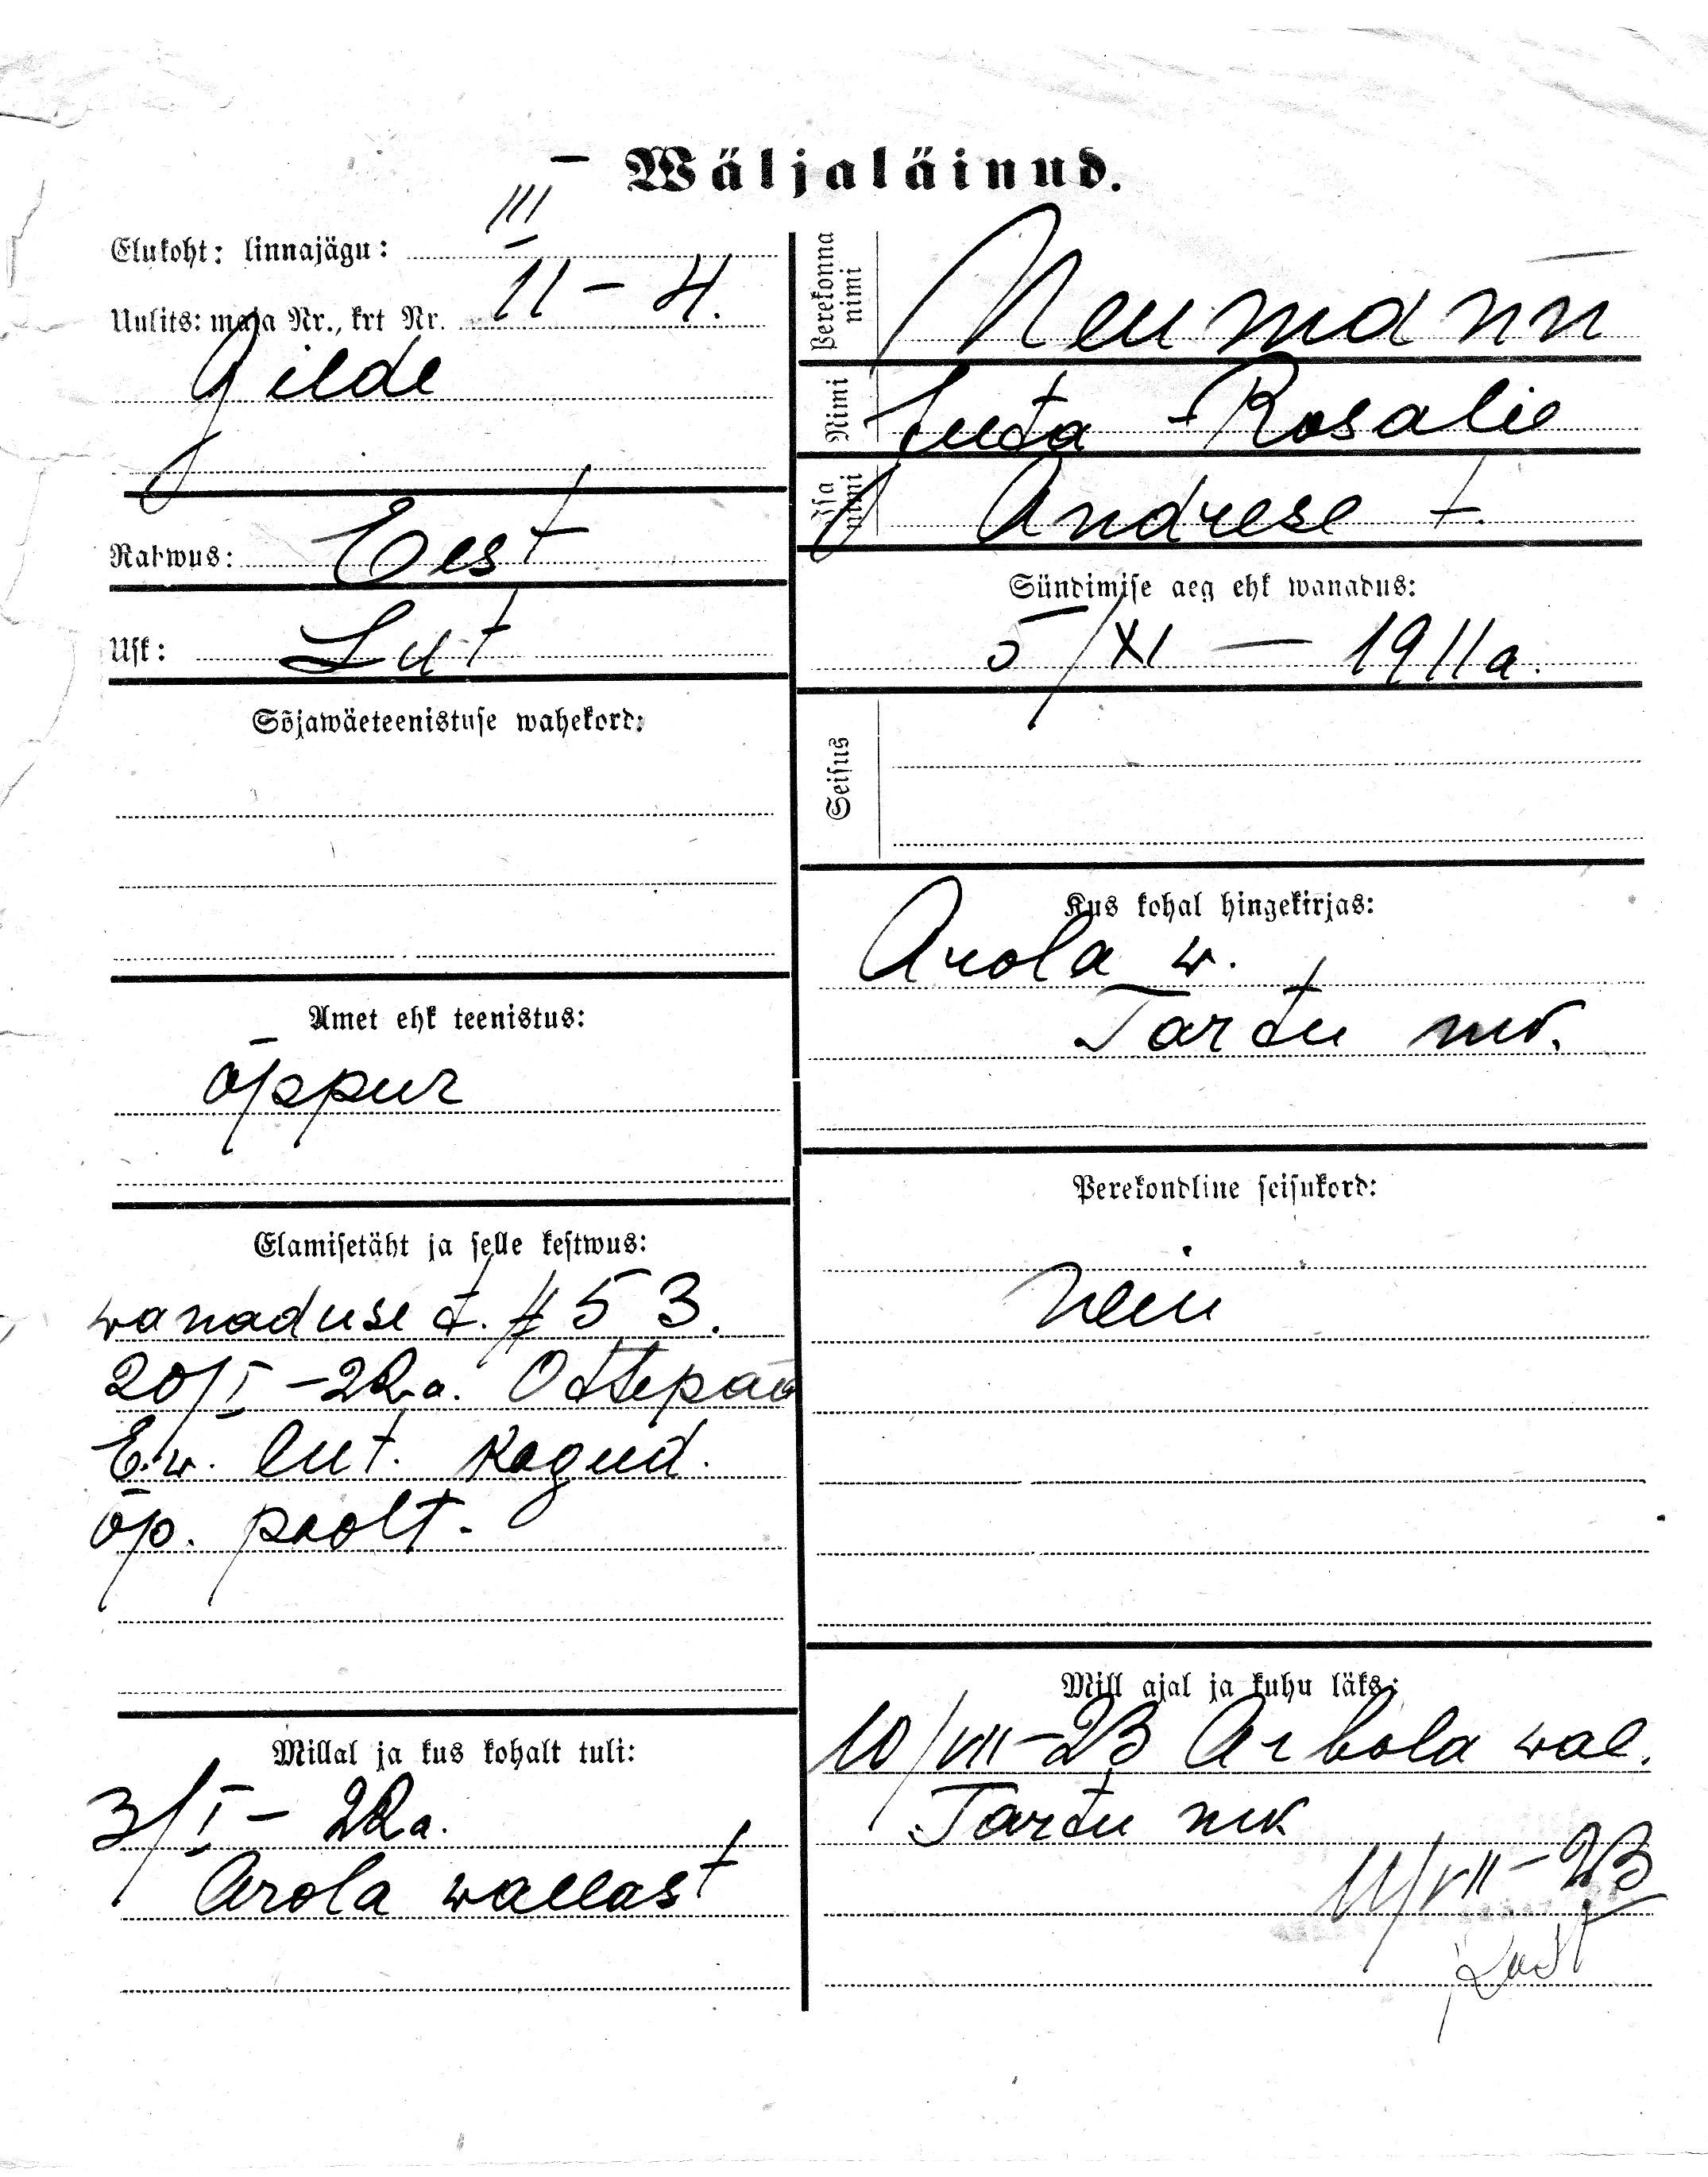 Wäljaläinud.
Elukoht: linnajägu: III
Uulits: maja Nr., krt Nr. 11 – 4.
Gilde
Rahwus: Eest
Usk: Lut
Sõjawäeteenistuse wahekord:
Amet ehk teenistus:
õppur
Elamisetäht ja selle kestwus:
wanaduse t. # 53.
20/I – 22 a. Ottepää
E.w. lut. kogud.
õp. poolt.
Millal ja kus kohalt tuli:
3/I – 22 a.
Arola wallast
Perekonna nimi Neumann
Nimi Juta-Rosalie
Isa nimi Andrese t.
Sündimise aeg ehk wanadus:
5/XI – 1911 a.
Seisus
Kus kohal hingekirjas:
Arola w.
Tartu mk.
Perekondline seisukord:
neiu
Mill ajal ja kuhu läks:
10/VII – 23 Arbola wal.
Tartu mk
11/VII – 23